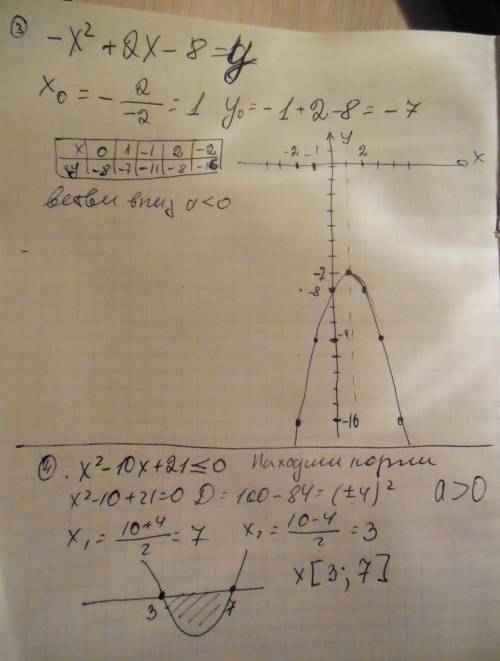 ③
-x² + 2x - 8 = y
x₀ = - 2/-2 = 1 y₀ = -1+2-8 = -7
x 0 1 -1 2 -2
y -8 -7 -11 -8 -16
ветви вниз a<0
y
-2 -1 2 x
-7
-8
-16
④. x²-10x+21≤0 Находим корни
x²-10+21=0 D=100-84=(±4)² a>0
x₁ = 10+4/2 = 7 x₂ = 10-4/2 = 3
x[3;7]
3 7